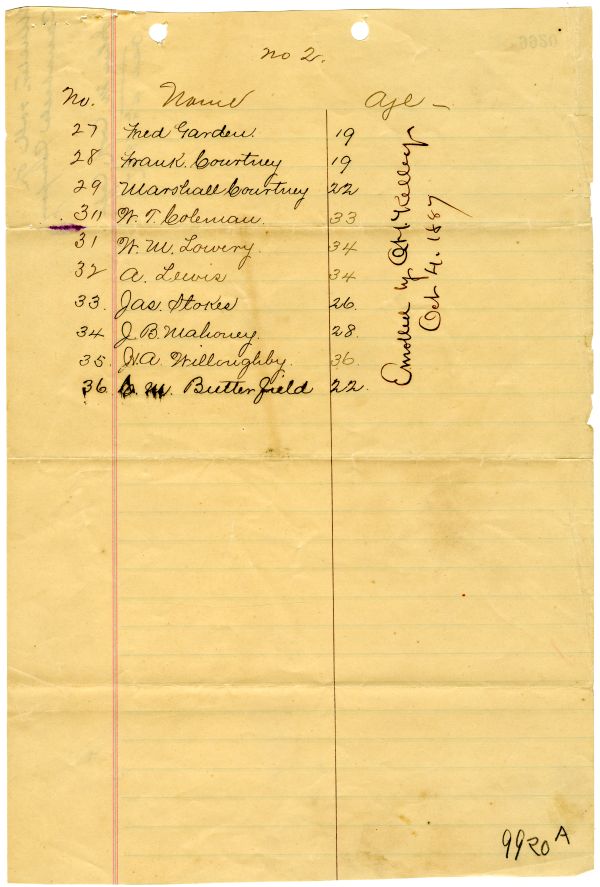 no 2.
No. Name Age —
27 Fred Garden. 19
28 Frank. Courtney 19
29 Marshall Courtney 22
30 W. T. Coleman. 33
31 W. M. Lowery. 34
32 A. Lewis 34
33. Jas. Stokes 26.
34 J. B. Mahoney. 28.
35. W. A. Willoughby. 36.
36 M. Butterfield 22.
Enrolled by
Oct 4. 1887
9920 A
9920